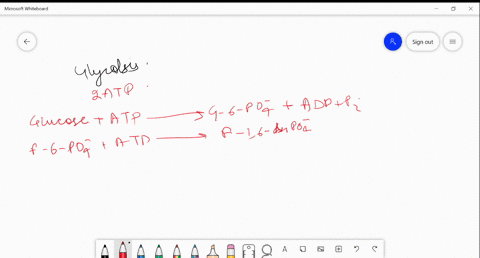 Microsoft Whiteboard
Sign out
Glycolysis:
2ATP:
Glucose + ATP → G-6-PO4⁻ + ADP + Pi
F-6-PO4⁻ + ATP → F-1,6-PO4⁻